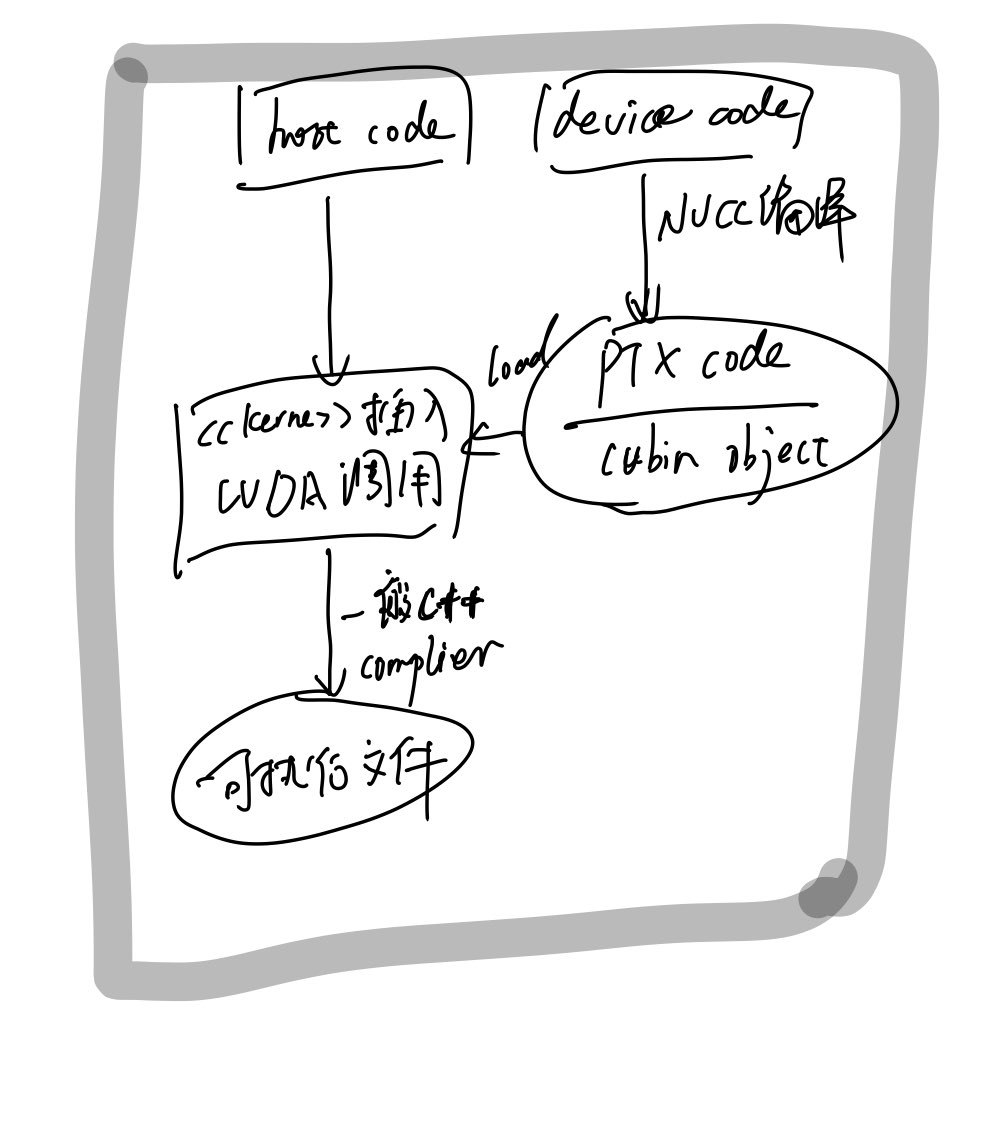 host code
device code
NVCC编译
load
PTX code
cubin object
<<kerne>> 插入
CUDA 调用
一般C++
complier
可执行文件